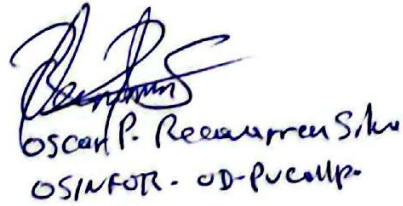 Oscar P. Recavarren Silva
OSINFOR - OD-Pucallpa